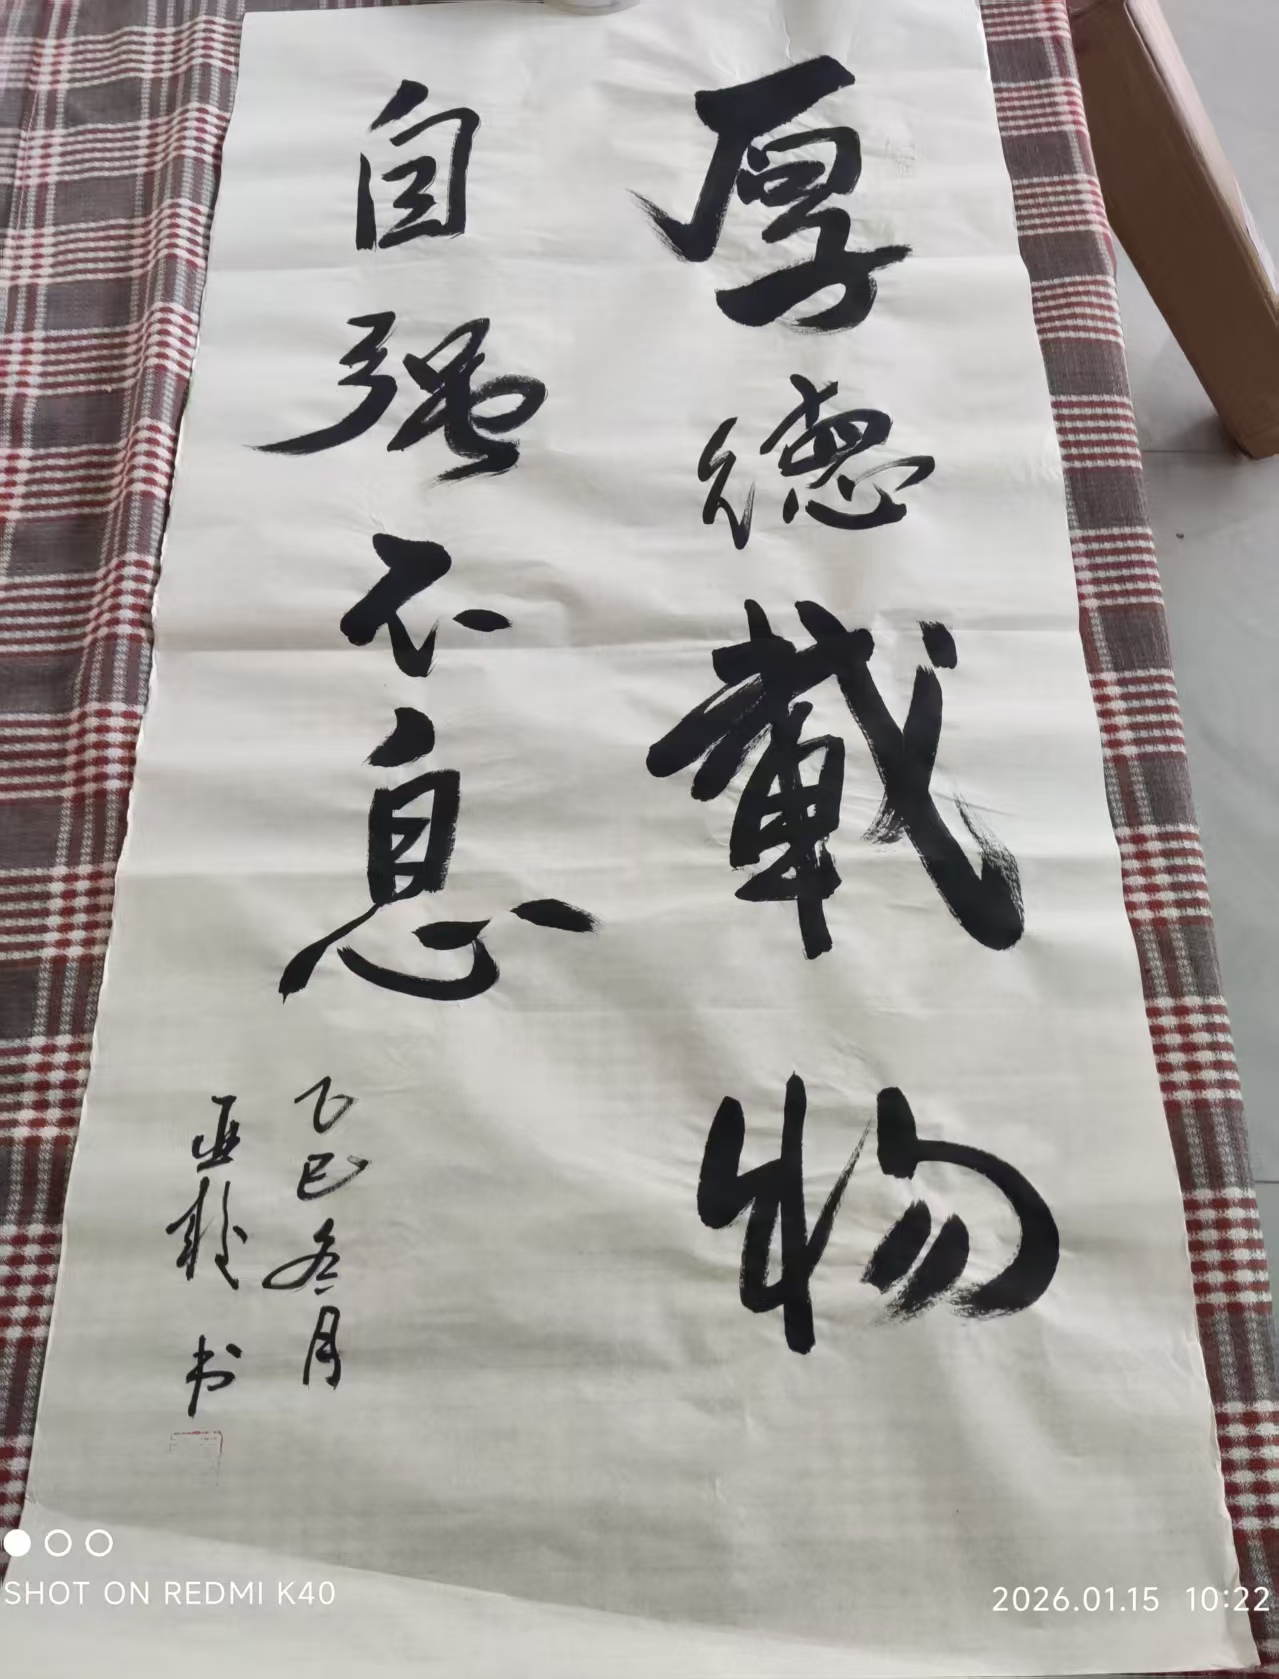 厚德載物
自强不息
乙巳冬月
亚桂书
SHOT ON REDMI K40
2026.01.15 10:22